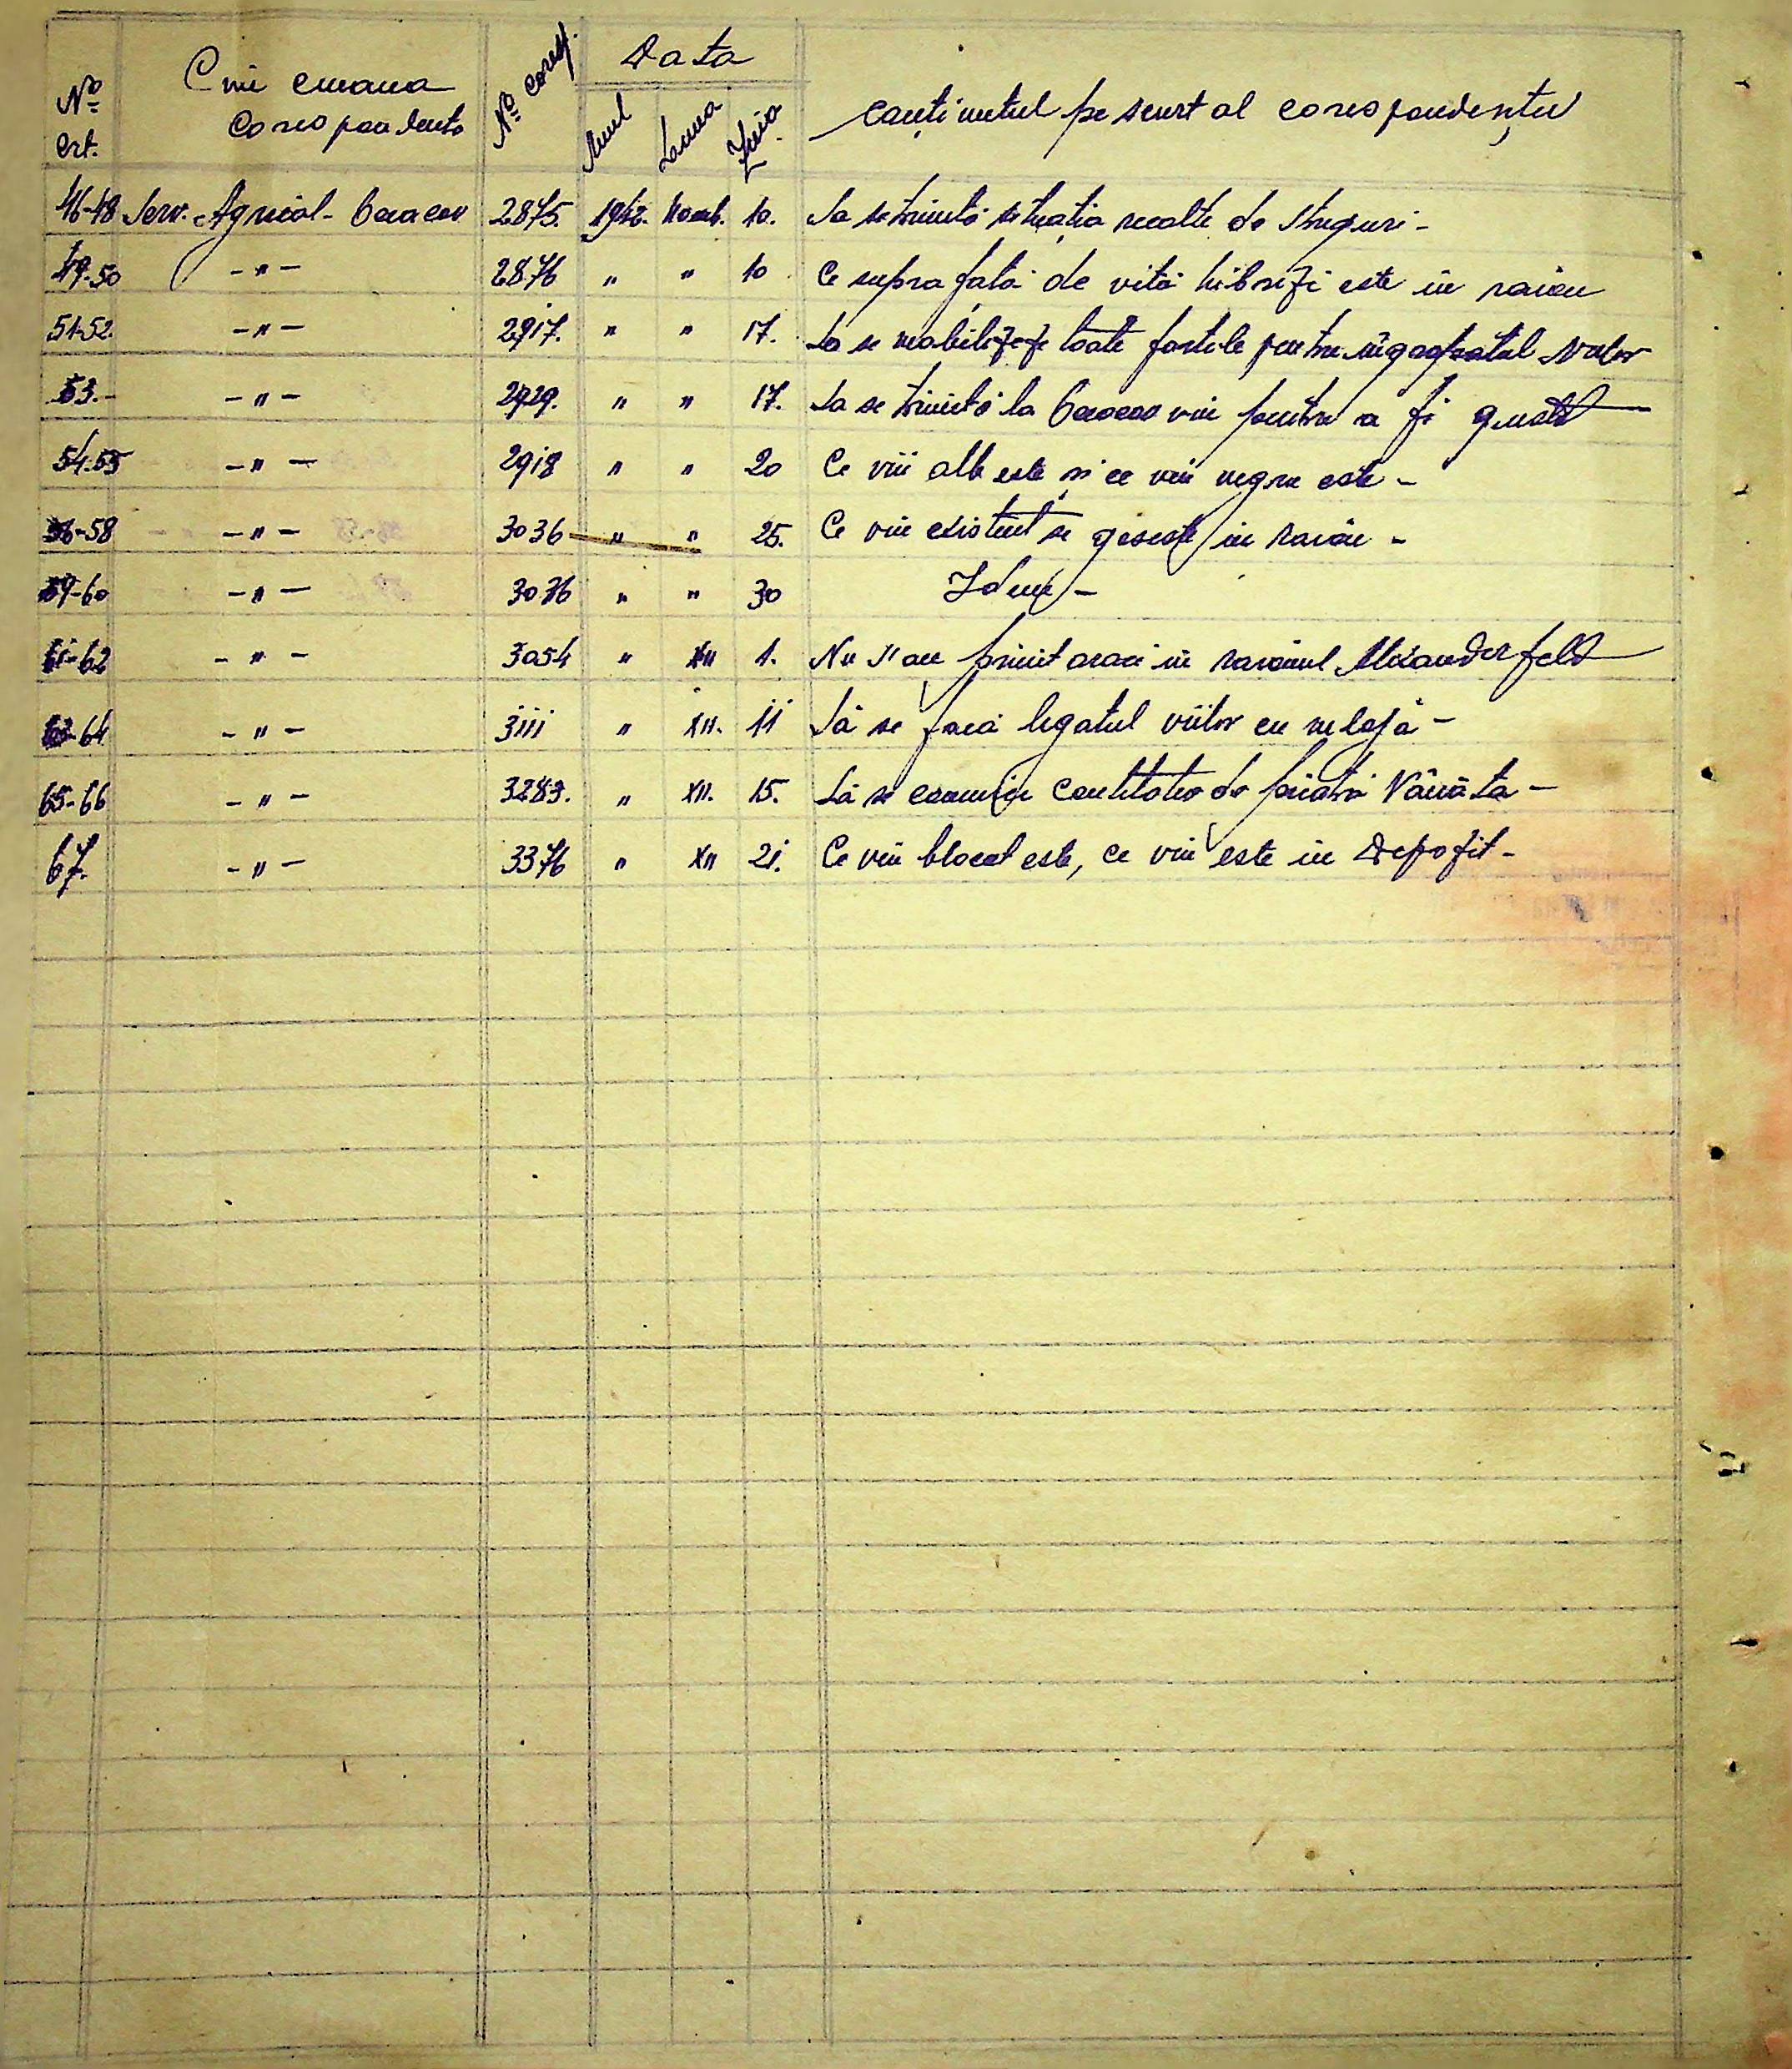 No crt. Cine emana Corespondenta No coresp. Data Anul Luna Ziua conținutul pe scurt al corespondenței
46-48 Serv. Agricol - 2875. 1942. Noemb. 10. Sa se trimită situația recoltei de struguri -
49-50 -"- 2876 " " 10 Ce suprafață de vită hibrizi este in raion
51-52. -"- 2917. " " 17. Sa se mobilizeze toate fortele pentru ingropatul viilor
53.- -"- 2929. " " 17. Sa se trimită la vin pentru a fi gustat
54-55 -"- 2918 " " 20 Ce vin alb este și ce vin negru este -
56-58 -"- 3036 " " 25. Ce vin existent se gaseste in raion -
59-60 -"- 3076 " " 30 Idem -
61-62 -"- 3054 " XII 1. Nu s'au primit araci in raionul Alexanderfeld
63-64 -"- 3111 " XII. 11 Să se facă legatul viilor cu
65-66 -"- 3283. " XII. 15. Să se comunice cantitatea de piatră Vânăta -
67. -"- 3376 " XII 21. Ce vin blocat este, ce vin este in Depozit -